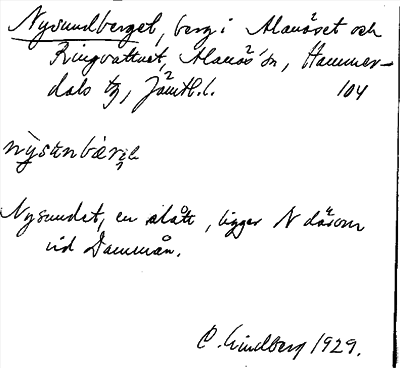 Nysundberget, berg i Alanäset och
Ringvattnet, Alanäs sn, Hammer-
dals tg, Jämtl. l. 104
Nysundet, en slått, ligger N därom
vid Dammån.
C. Lindberg 1929.